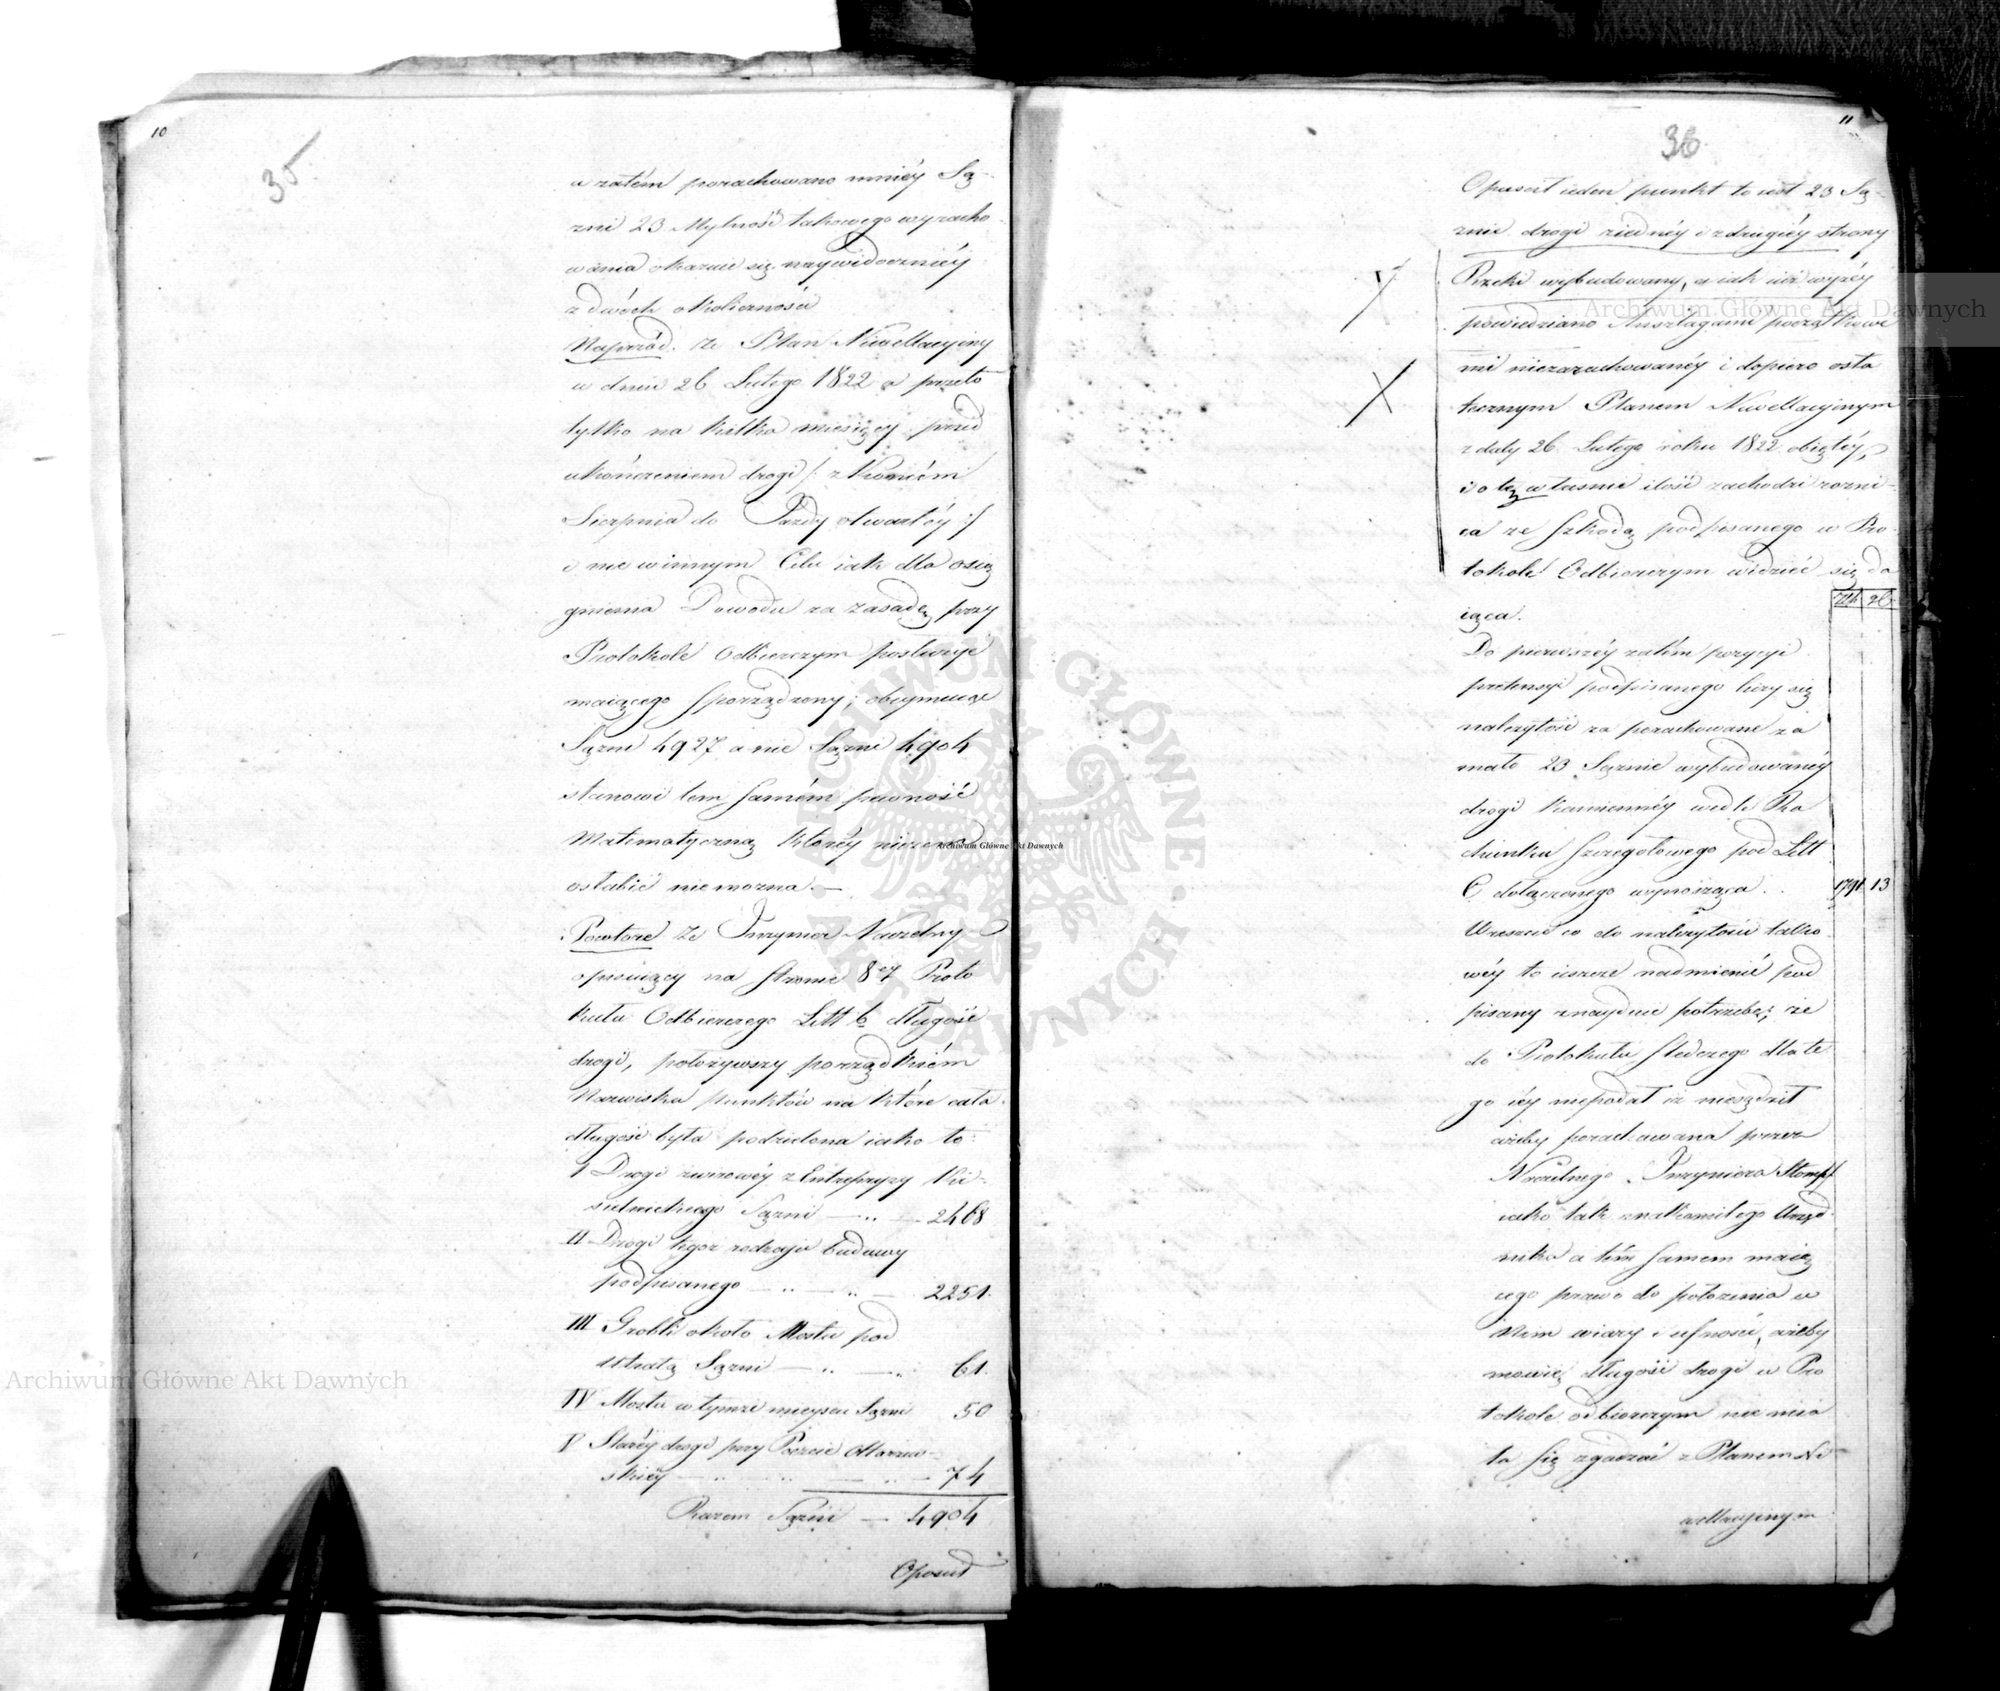 10
35
a zatém porachowano mniéy Są-
zni 23 Mylność takowego wyracho
wania okazuie się naywidoczniéy
z dwóch okoliczności
Naprzód. że Plan Niwellacyiny
w dniu 26 Lutego 1822 a przeto
tylko na kilka miesięcy przed
ukończeniem drogi /: z końcém
Sierpnia do Jazdy otwartéy :/
i nie w innym Celu iak dla osią
gnienia Dowodu za zasadę przy
Protokole Odbiorczym posłużyć
maiącego sporządzony; obeymuiąc
Sążni 4927 a nie Sążni 4904
stanowi tem samém pewność
Matematyczną któréy niczem
osłabić niemożna. —
Powtóre że Inżynier Naczelny
opisuiący na stronie 8ey Proto
kułu Odbiorczego Litt b długość
drogi, położywszy porządkiém
Nazwiska punktów na które cała
długość była podzielona iako to:
I Drogi żwirowéy z Entrepryzy Ki-
sielnickiego Sążni — „ — 2468
II Drogi tegoż rodzaju budowy
podpisanego — „ — „ — 2251.
III Grobli około Mostu pod
Utratą Sążni — „ — „ 61.
IV Mostu w tymże mieyscu Sążni 50
V Staréy drogi przy Poczcie Ołtarzew-
skiéy — „ — „ — „ — 74
Razem Sążni — 4904
Opuścił
11
36
Opuścił ieden punkt to iest 23 Są-
żnie drogi ziednéy i zdrugiéy strony
Rzeki wybudowany, a iak iuż wyżéy
powiedziano Anszlagami początkowe
mi niezarachowanéy i dopiero osta
tecznym Planem Niwellacyinym
z daty 26 Lutego roku 1822 obiętéy,
i o tę własnie ilość zachodzi rozni-
ca ze szkodą podpisanego w Pro
tokole Odbiorczym widzieć się da
iąca.
Złp gr
Do pierwszéy zatém pozycyi
pretensyi podpisanego liczy się
należytość za porachowane za
mało 23 Sążnie wybudowanéy
drogi kamiennéy wedle Ra
chunku szczegółowego pod Litt
C, dołączonego wynosząca . . 1791 13
Wreszcie co do należytości tako
wéy to ieszcze nadmienić pod
pisany znayduie potrzebę; że
do Protokułu śledczego dla te
go iéy niepodał iż niesądził
ażeby porachowana przez
Naczelnego Inżyniera Stompf
iako tak znakomitego Urzęd
nika a tém samem maią
cego prawo do położenia w
Nim wiary i ufności, ażeby
mowię długość drogi w Pro
tokole odbiorczym nie mia
ła się zgadzać z Planem Ni-
wellacyinym
Archiwum Główne Akt Dawnych
Archiwum Główne Akt Dawnych
Archiwum Główne Akt Dawnych
ARCHIWUM GŁÓWNE AKT DAWNYCH